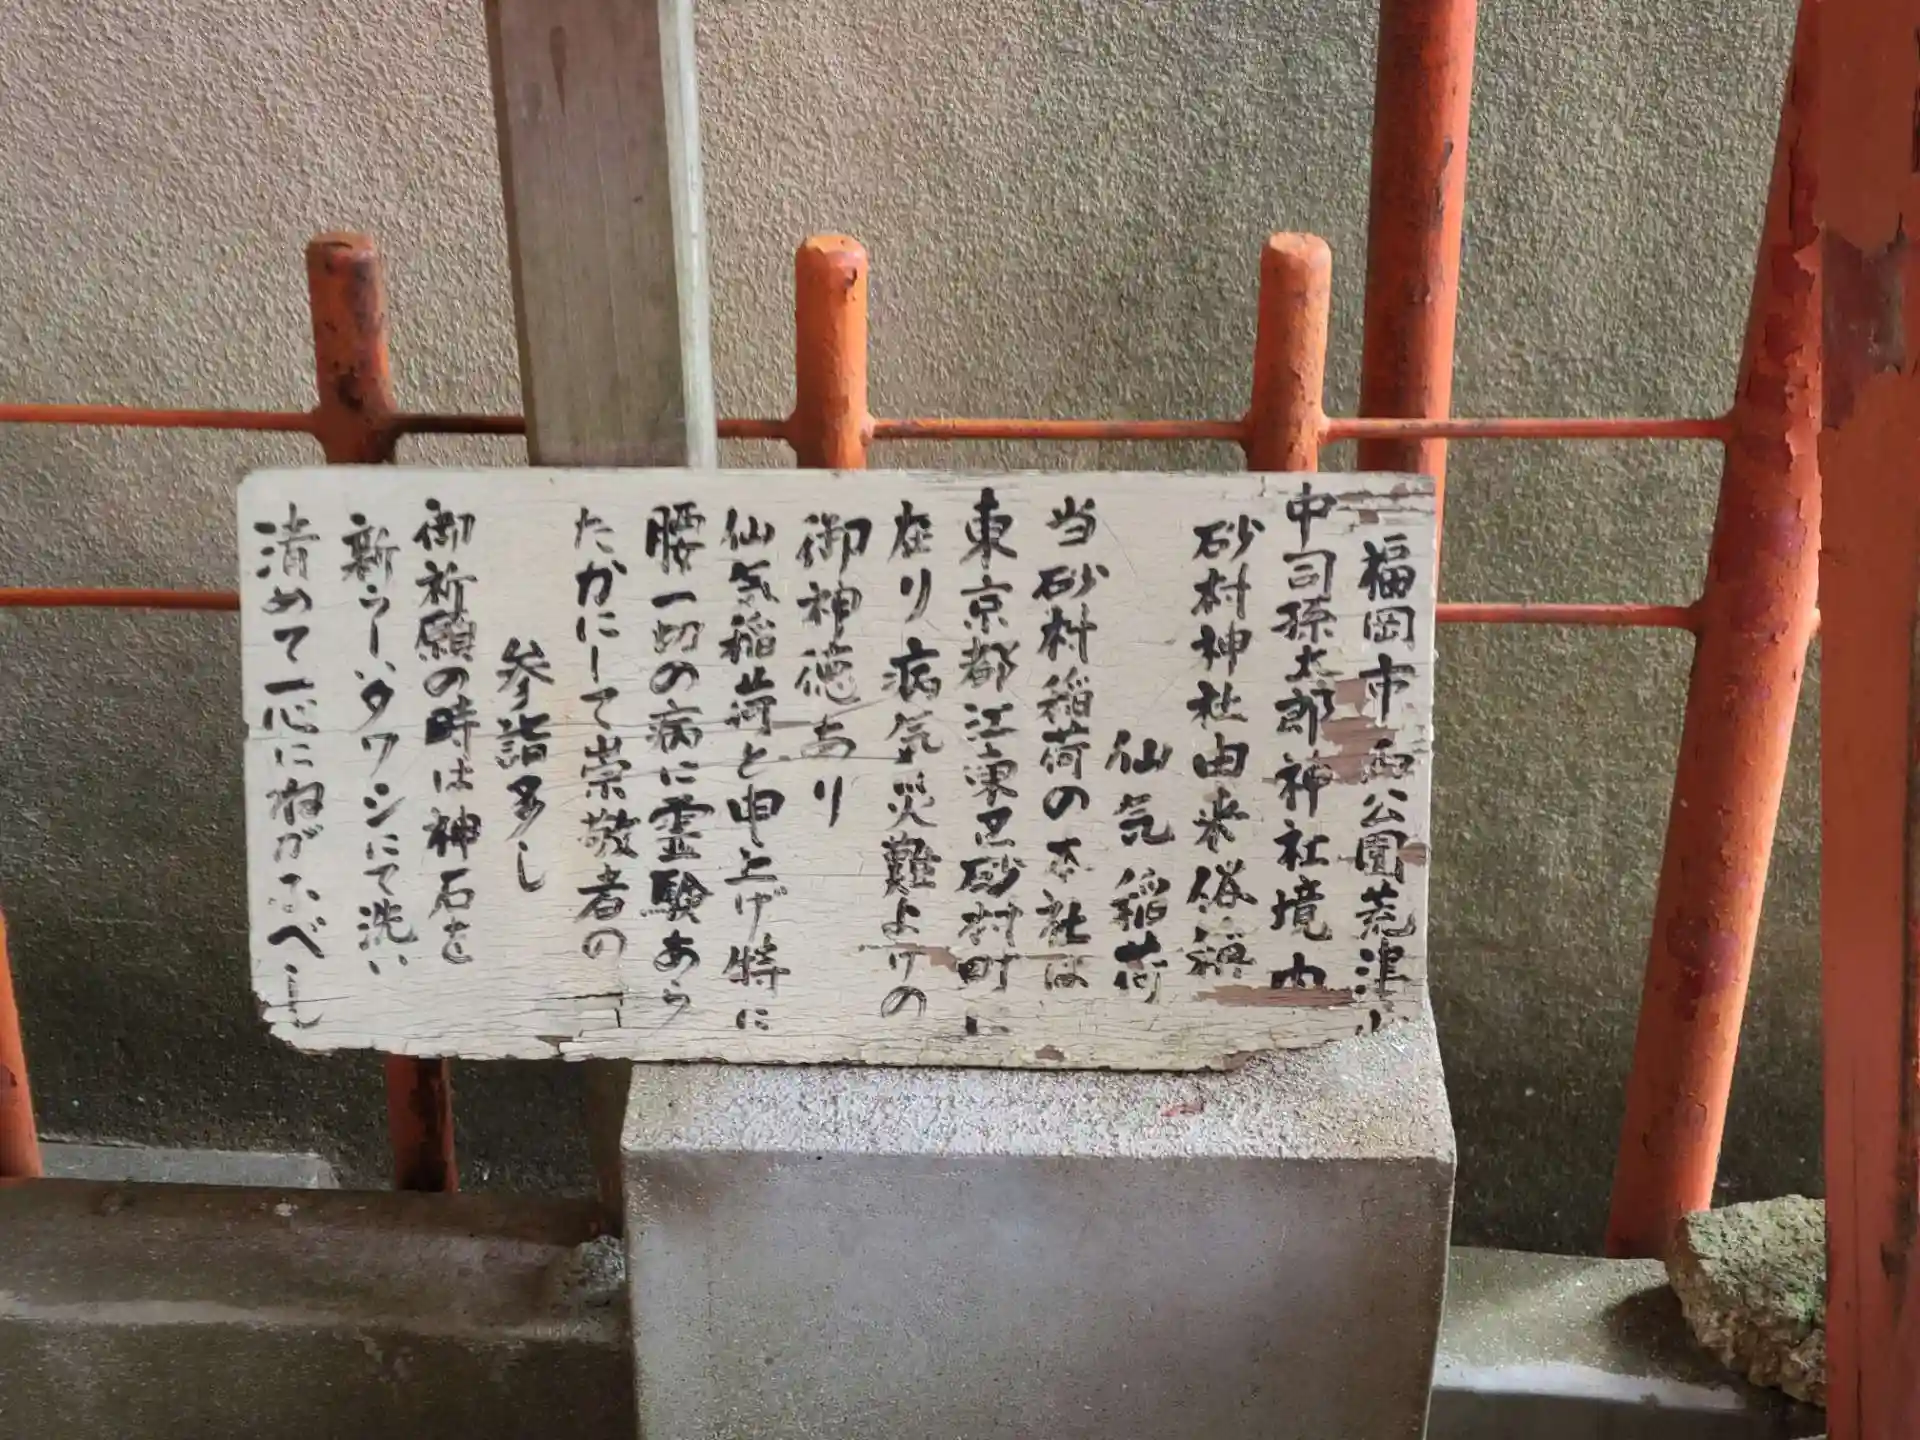 福岡市西公園荒津山
中司孫太郎神社境内
砂村神社由来俗称
仙気稲荷
当砂村稲荷の本社は
東京都江東区砂村町に
在り病気災難よけの
御神徳あり
仙気稲荷と申上げ特に
腰一切の病に霊験あら
たかにして崇敬者の
参詣多し
御祈願の時は神石を
新らしいタワシにて洗い
清めて一心に祢がふべし